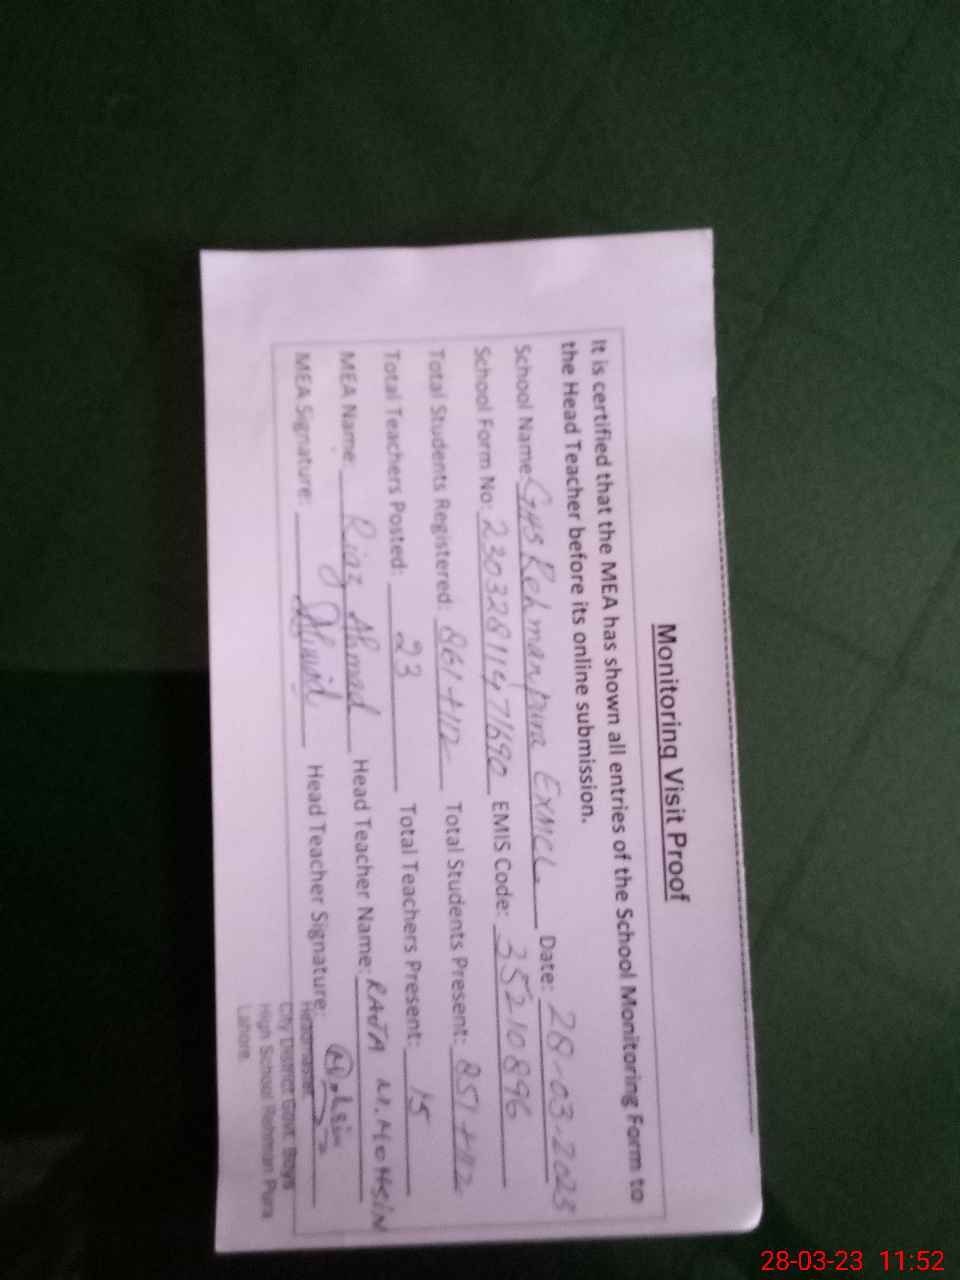 Monitoring Visit Proof
It is certified that the MEA has shown all entries of the School Monitoring Form to
the Head Teacher before its online submission.
School Name: GHS Rehmanpura EXMCL. Date: 28-03-2023
School Form No: EMIS Code: 35210896
Total Students Registered: 861+112 Total Students Present: 851+112
Total Teachers Posted: 23 Total Teachers Present: 15
MEA Name: Riaz Ahmad Head Teacher Name: RAJA M. MOHSIN
MEA Signature: Head Teacher Signature: Mohsin
Headmaster
City District Govt. Boys
High School Rehman Pura
Lahore
28-03-23 11:52